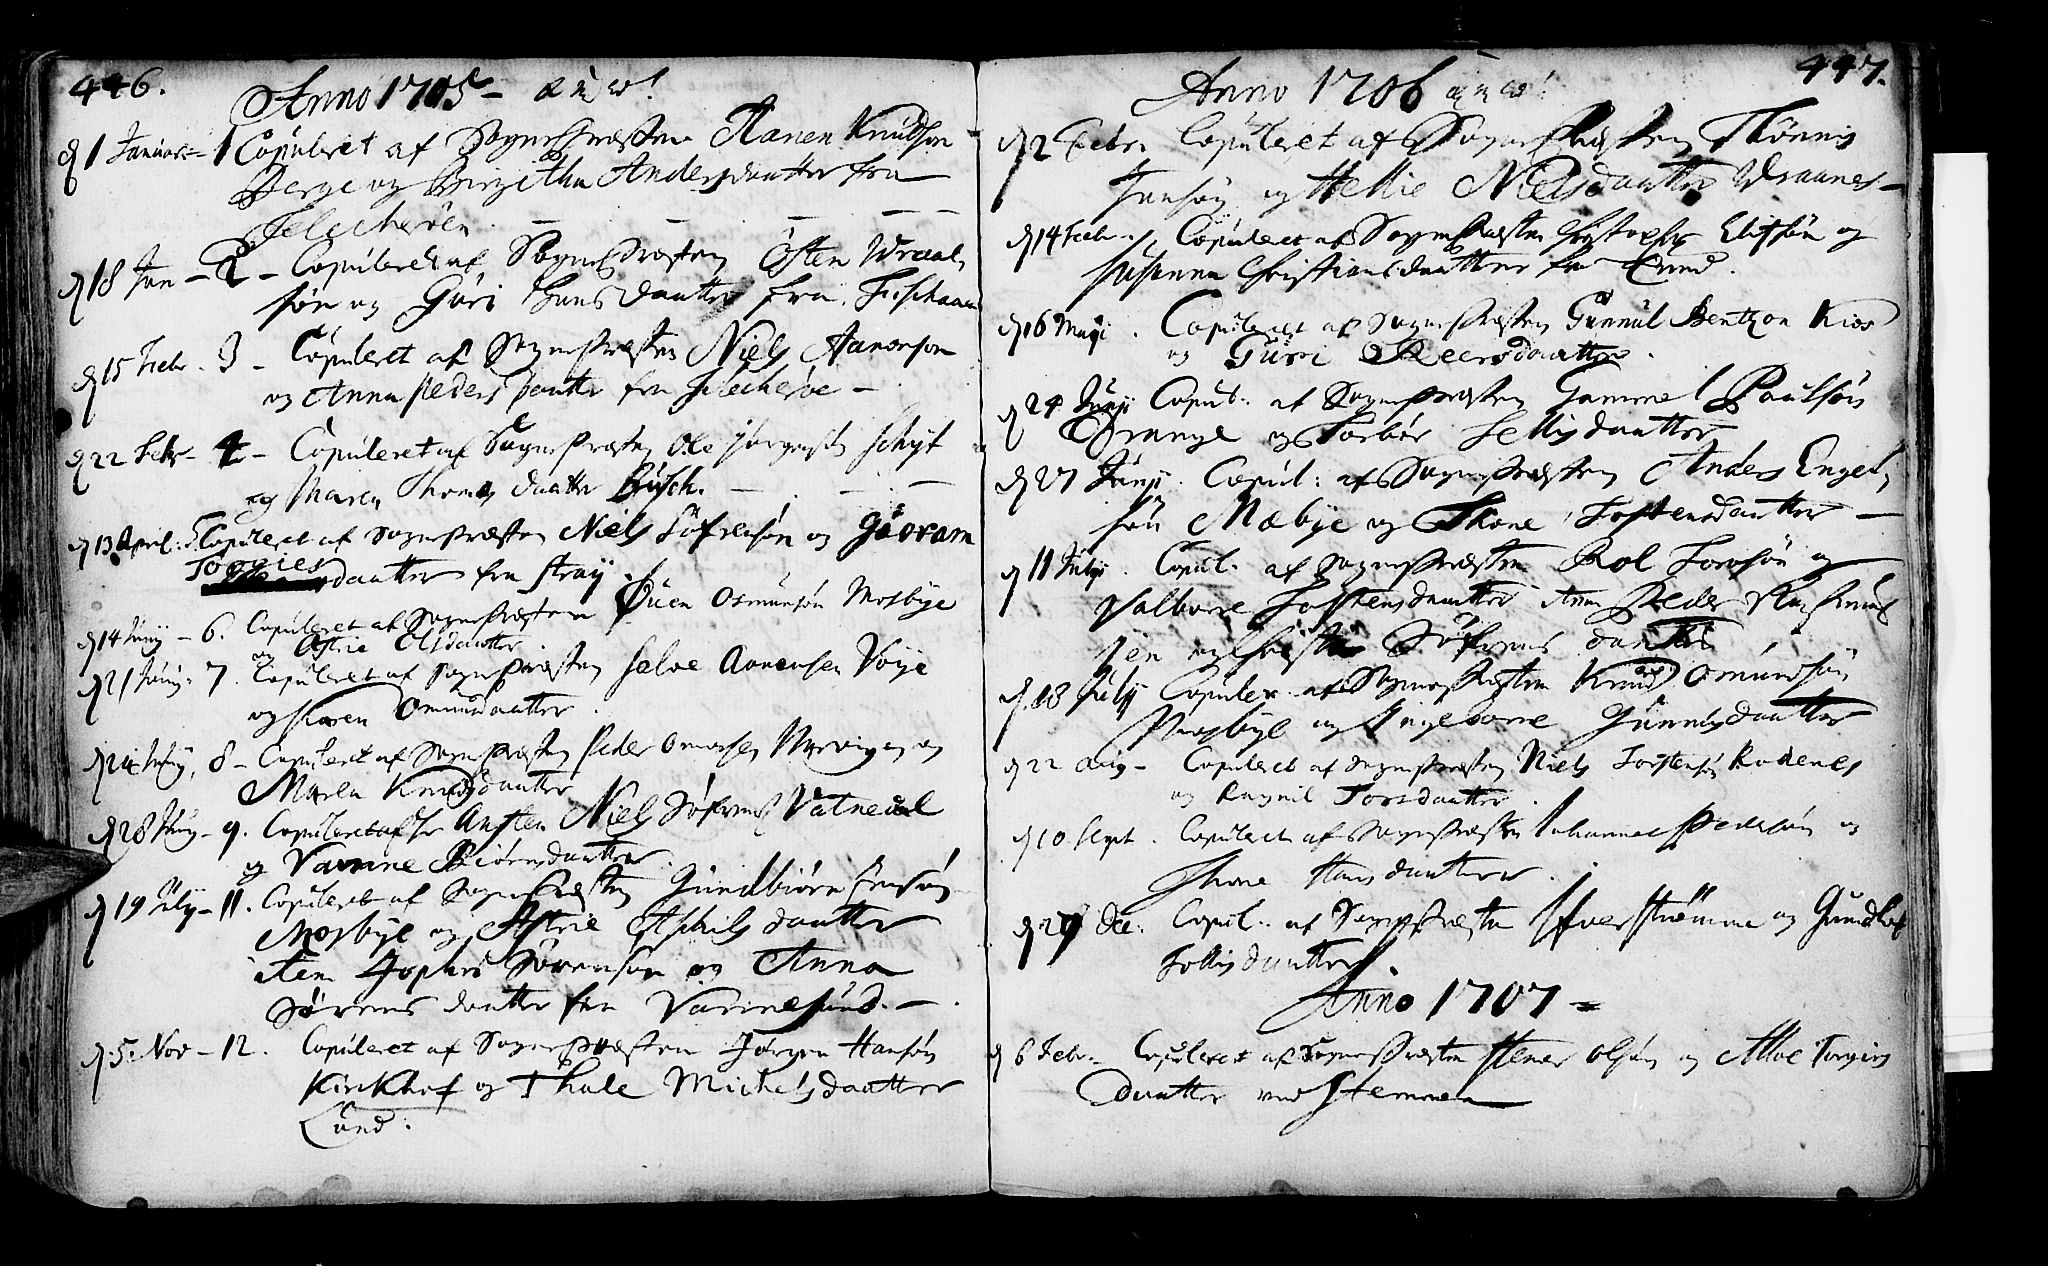 446.
Anno 1705 -
d 1 Januari - 1 Copuleret af Sognepræsten Aanen Knudsøn
Berge og Birgitha Andersdaatter fra
Flecherøen.
d 18 Jan - 2 - Copuleret af Sognepræsten Østen Wraal,
søn og Gúri Hansdaatter fra
d 15 Febr. 3 - Copuleret af Sognepræsten Niels Aanonsøn
og Anna Peders daatter fra Flecherøe -
d 22 Febr - 4 - Copuleret af Sognepræsten Ole Jørgensøn Schyt
og Maren Thomes daatter Búsch. -
d 13 April: 5 Copuleret af Sognepræsten Niels Söfrensøn og Giøram
Torgies daatter fra Stray
d 14 Junij - 6. Copuleret af Sognepræsten Öuen Osmunsøn Mosbye
og Astrie Olsdaatter
d 21 Junij - 7. Copuleret af Sognepræsten Salve Aanensen Voye
og Karen Omunsdaatter.
d 24 Junij, 8 - Copuleret af Sognepræsten Peder Omersen og
Maren Knudsdaatter
d 28 Junij - 9. Copuleret af hr Austen Niels Söfrens Vatnedal
og Varine Biörnsdaatter.
d 19 July - 11. Copuleret af Sognepræsten Gundbiörn Ensøn
Mosbye og Astrie Aschilsdaatter
item Jophes Sörensøn og Anna
Sørens daatter fra Varinesund. -
d 5. Nov - 12. Copuleret af Sognepræsten Jørgen Hansøn
Kirkhof og Thale Michels daatter
Lund.
447.
Anno 1706
d 2 Febr. Copuleret af Sognepræsten Thönnis
Jansøn og Hellie Nielsdaatter Wraanes -
d 14 Febr. Copuleret af Sognepræsten Christopher Elifsøn og
Susanna Christians daatter fra Lund.
d 16 Maij. Copuleret af Sognepræsten Gunnúl Bentzon Kios
og Gúri Peersdaatter.
d 24 Junij Copul: af Sognepræsten Gammel Paulsøn
Drange og Torbór Sellisdaatter
d 27 Junij. Copul: af Sognepræsten Anders Engel,
søn Mæbye og Thone Tostensdaatter -
d 11 Julij. Copul: af Sognepræsten Rol Toresøn og
Valborre Tostensdaatter item Peder Rasmus
sen og Söfrens daatter
d 18 Julij Copuler af Sognepræsten Knud Omundsøn
Mosbye og Ingeborre Gunnilsdaatter
d 22 Aug - Copuleret af Sognepræsten Niels Torstensøn Rodenes
og Ragnil Torsdaatter.
d 10 Sept. Copuleret af Sognepræsten Johannes Pedersøn og
Thone Hansdaatter.
d 29 Dec. Copul: af Sognepræsten Ifver Strömme og Gundbor
Tollisdaatter.
Anno 1707 -
d 6 Febr. Copuleret af Sognepræsten Stener Olsøn og Alloe Torgiers
daatter ved Stemmen